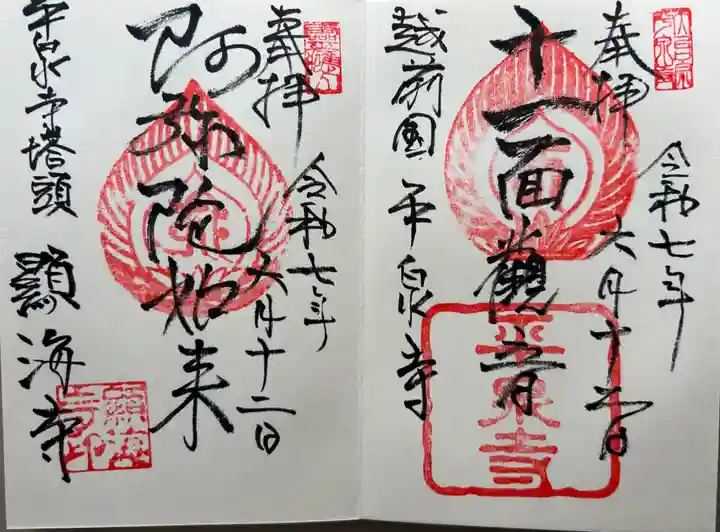 奉拝
令和七年
六月十二日
十一面観音
越前国 平白泉寺
平泉寺
奉拝
令和七年
六月十二日
阿弥陀如来
平白泉寺塔頭
顕海寺
顕海寺印